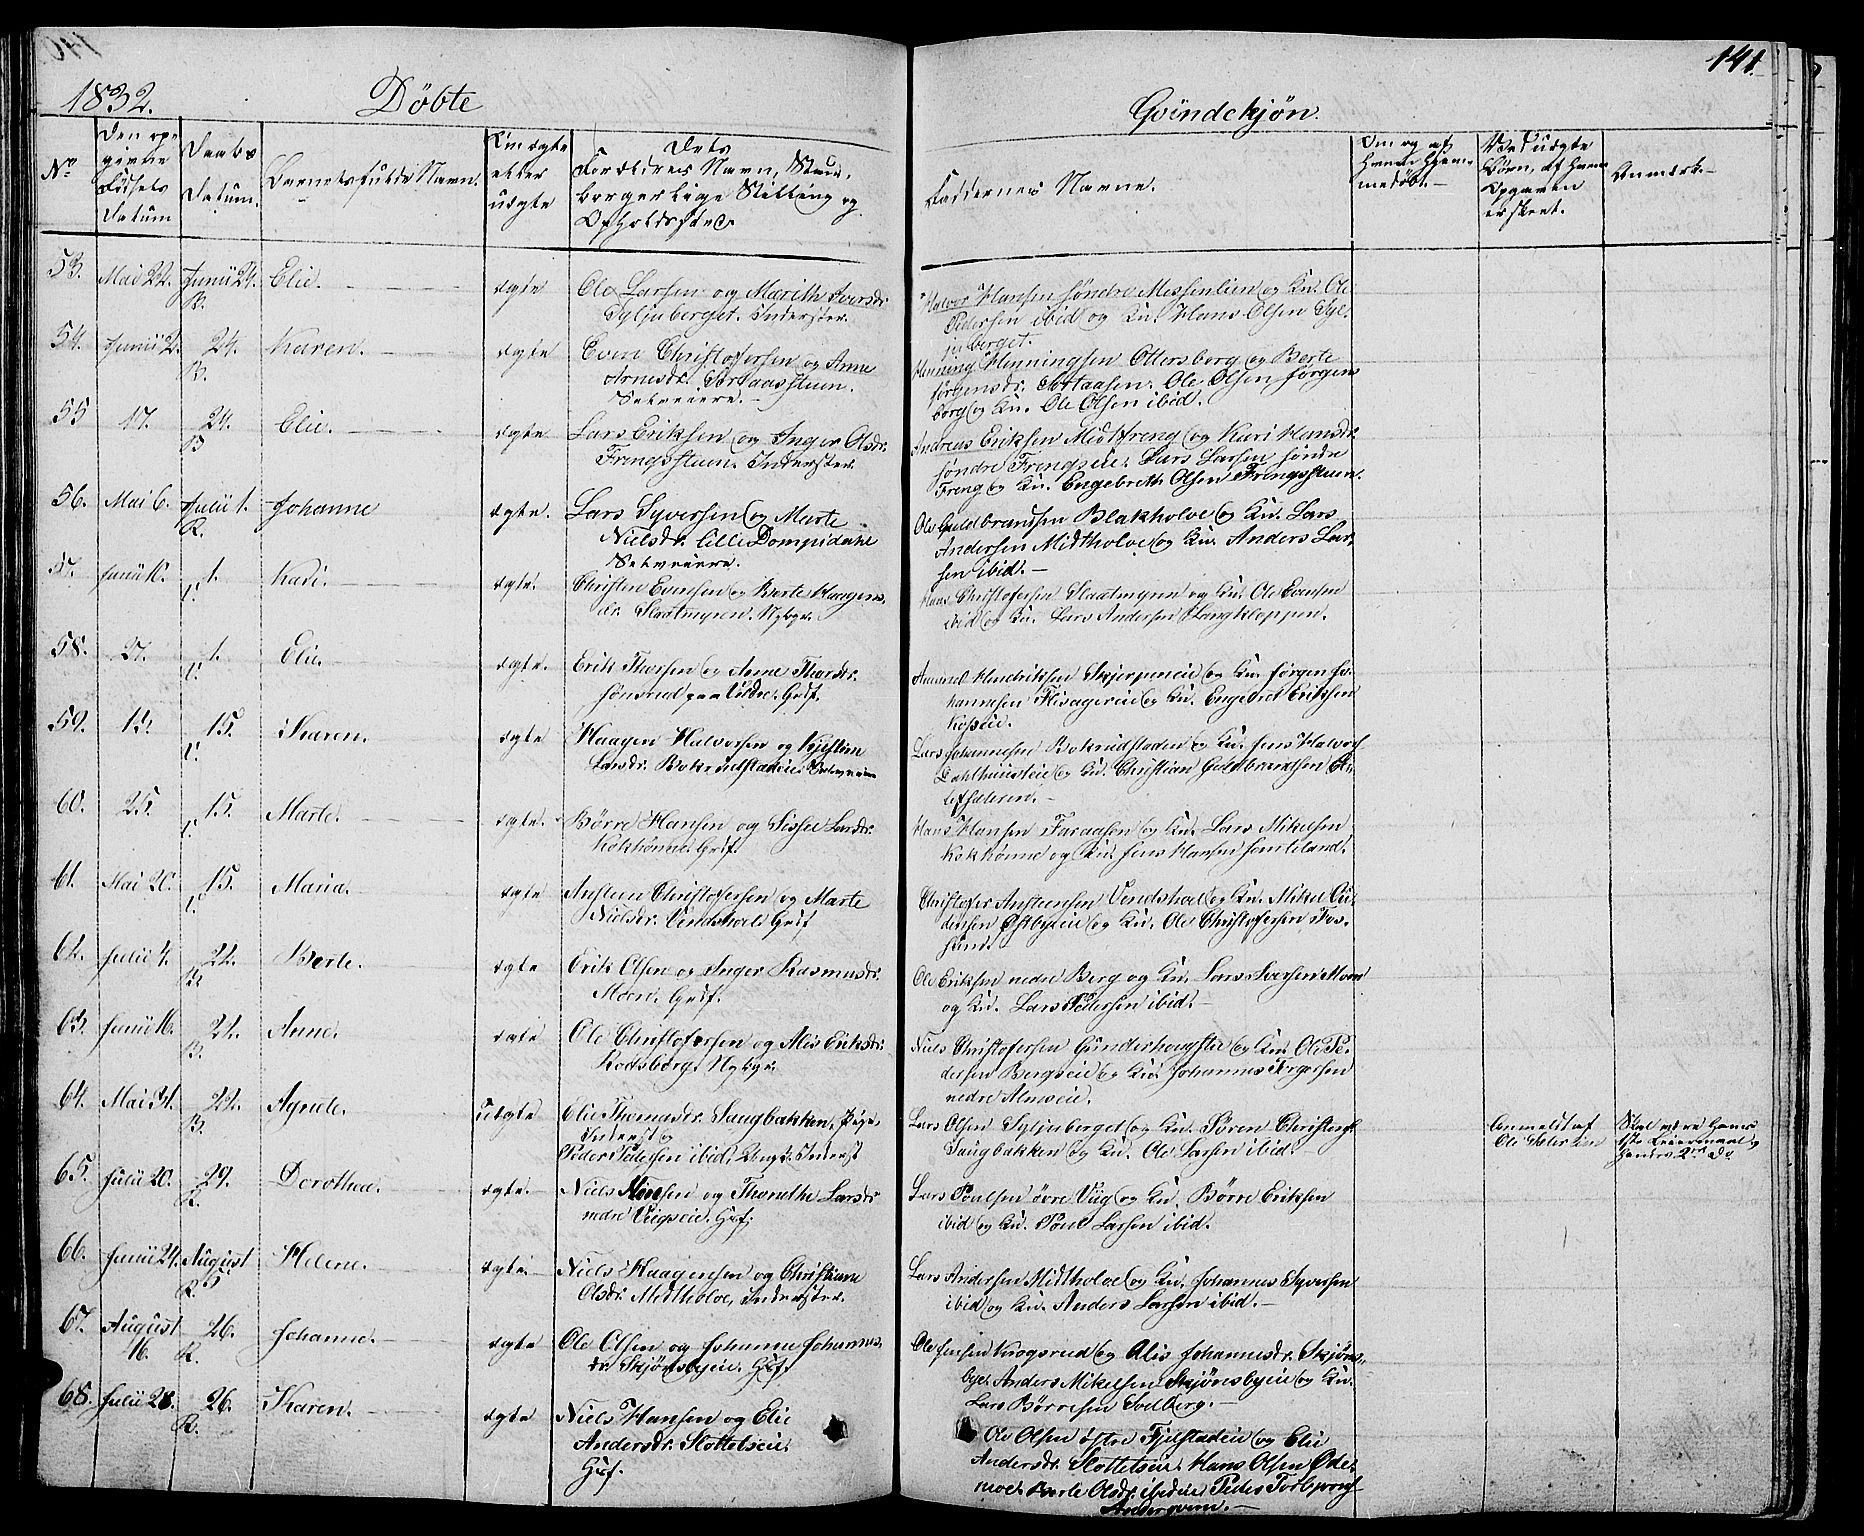 141.
1832. Döbte Qvindekjøn.
No
Den opgivne Fødsels Datum
Daabs Datum.
Barnets fulde Navn.
Om ægte eller uægte
Dets Forældres Navn, Stand, borgerlige Stilling og Opholdssted
Faddernes Navne.
Om og af hvem hjemmedøbt.
Ved uægte Børn, at Opgaven er skeet.
Anmærk.
53. Mai 22. Junii 24. B. Elie. ægte Ole Larsen og Marith Iversdr.
Syljuberget. Inderster.
Halvor Hansen søndre Messenlien og Kn. Ole
Pedersen ibid og Kn. Hans Olsen Syl-
juberget.
54. Junii 2. 24. B. Karen. ægte Even Christofersen og Anne
Arnesdr. Sortaasstuen.
Selveiere.
Henning Henningsen Ottersborg og Berte
Jörgensdr. Sortaasen. Ole Olsen Jørgens
borg og Kn. Ole Olsen ibid.
55 17. 24. B Elie. ægte Lars Eriksen og Inger Olsdr.
Frengsstuen. Inderster.
Andreas Eriksen Midtfreng og Kari Hansdr.
søndre Frengseie. Lars Larsen søndre
Freng og Kn. Engebreth Olsen Frengsstuen.
56. Mai 6. Julii 1. R. Johanne ægte. Lars Syversen og Marte
Nielsdr. lille Dompidahl
Selveiere.
Ole Guldbrandsen Blakholve og Kn. Lars
Andersen Midtholve og Kn. Anders Lar-
sen ibid.
57. Junii 10. 1. Kari. ægte. Christen Evensen og Berte Haagens
dr. Slaatmyren. Nybygr.
Hans Christofersen Slaatmyren og Kn. Ole Evensen
ibid og Kn. Lars Andersen Langkloppen.
58. 27. 1. Elie. ægte. Erik Thorsen og Anne Thordr.
Grif.
Amund Hendriksen Skjerpeneie og Kn. Jørgen Jo-
hannesen Flisagereie og Kn. Engebret Eriksen
59. 15. Karen. ægte Haagen Halvorsen og Kjestine
Larsdr.
Lars Johannesen Bokrudstaden og Kn. Jens Halvors
Dahlhuuseie og Kn. Christian Guldbrandsen
60. 25. 15. Marte. ægte. Børre Hansen og Sissel Larsdr.
Kokhonne. Grif.
Hans Hansen Faraasen og Kn. Lars Mikelsen
Kokhonne og Kn. Jens Hansen
61. Mai 20. 15. Maria. ægte Ansteen Christofersen og Marte
Nielsdr. Vendshoel Grif
Christofer Anstensen Vendshoel og Kn. Mikel
Østbyeie og Kn. Ole Christofersen
62. Julii 4. 22. R. Berte. ægte Erik Olsen og Inger Rasmusdr.
Moen. Grif.
Ole Eriksen nedre Berg og Kn. Lars Iversen Moen
og Kn. Lars Pedersen ibid.
63. Junii 16. 22. B. Anne. ægte Ole Christofersen og Alis Eriksdr.
Rodsborg. Nybyr.
Niels Christofersen Gunderhaugstue og Kn. Ole Pe-
dersen Bergseie og Kn. Johannes Torgersen
nedre Almseie.
64. Mai 31. 22. B. Agnete. Uægte Elie Thomasdr. Saugbakken, Pige,
Inderst og
Peder Pedersen ibid, Ungk. Inderst
Lars Olsen Syljuberget og Kn. Søren Christofs.
Saugbakken og Kn. Ole Larsen ibid.
Anmeldt af
Ole Pedersen
Skal være hans
1ste Leiermaal,
hendes 2det do
65. Julii 20. 29. R. Dorothea. ægte. Niels Hansen og Thorethe Larsdr
nedre Viigseie. Huf.
Lars Poulsen øvre Viig og Kn. Børre Eriksen
ibid og Kn. Poul Larsen ibid.
66. Junii 24. August 5 R. Helene. ægte. Niels Haagensen og Christiane
Olsdr. Midtholve, Inderster.
Lars Andersen Midtholve og Kn. Johannes Syversen
ibid og Kn. Anders Larsen ibid.
67. August 16. 26. R. Johanne. ægte Ole Olsen og Johanne Johannes
dr. Skjønsbyeie. Huf.
Ole Jensen Krogsrud og Alis Johannesdr. Skjøns-
bye. Anders Mikelsen Skjønsbyeie og Kn.
Lars Børresen Solberg.
68. Julii 28. 26. R. Karen. ægte Niels Hansen og Elie
Andersdr. Slottetseie.
Huf.
Ole Olsen østre Fjelstadeie og Elie
Andersdr. Slottetseie. Hans Olsen Ode-
moe. Berte Olsdr. ibideie Peder Torbjørns.